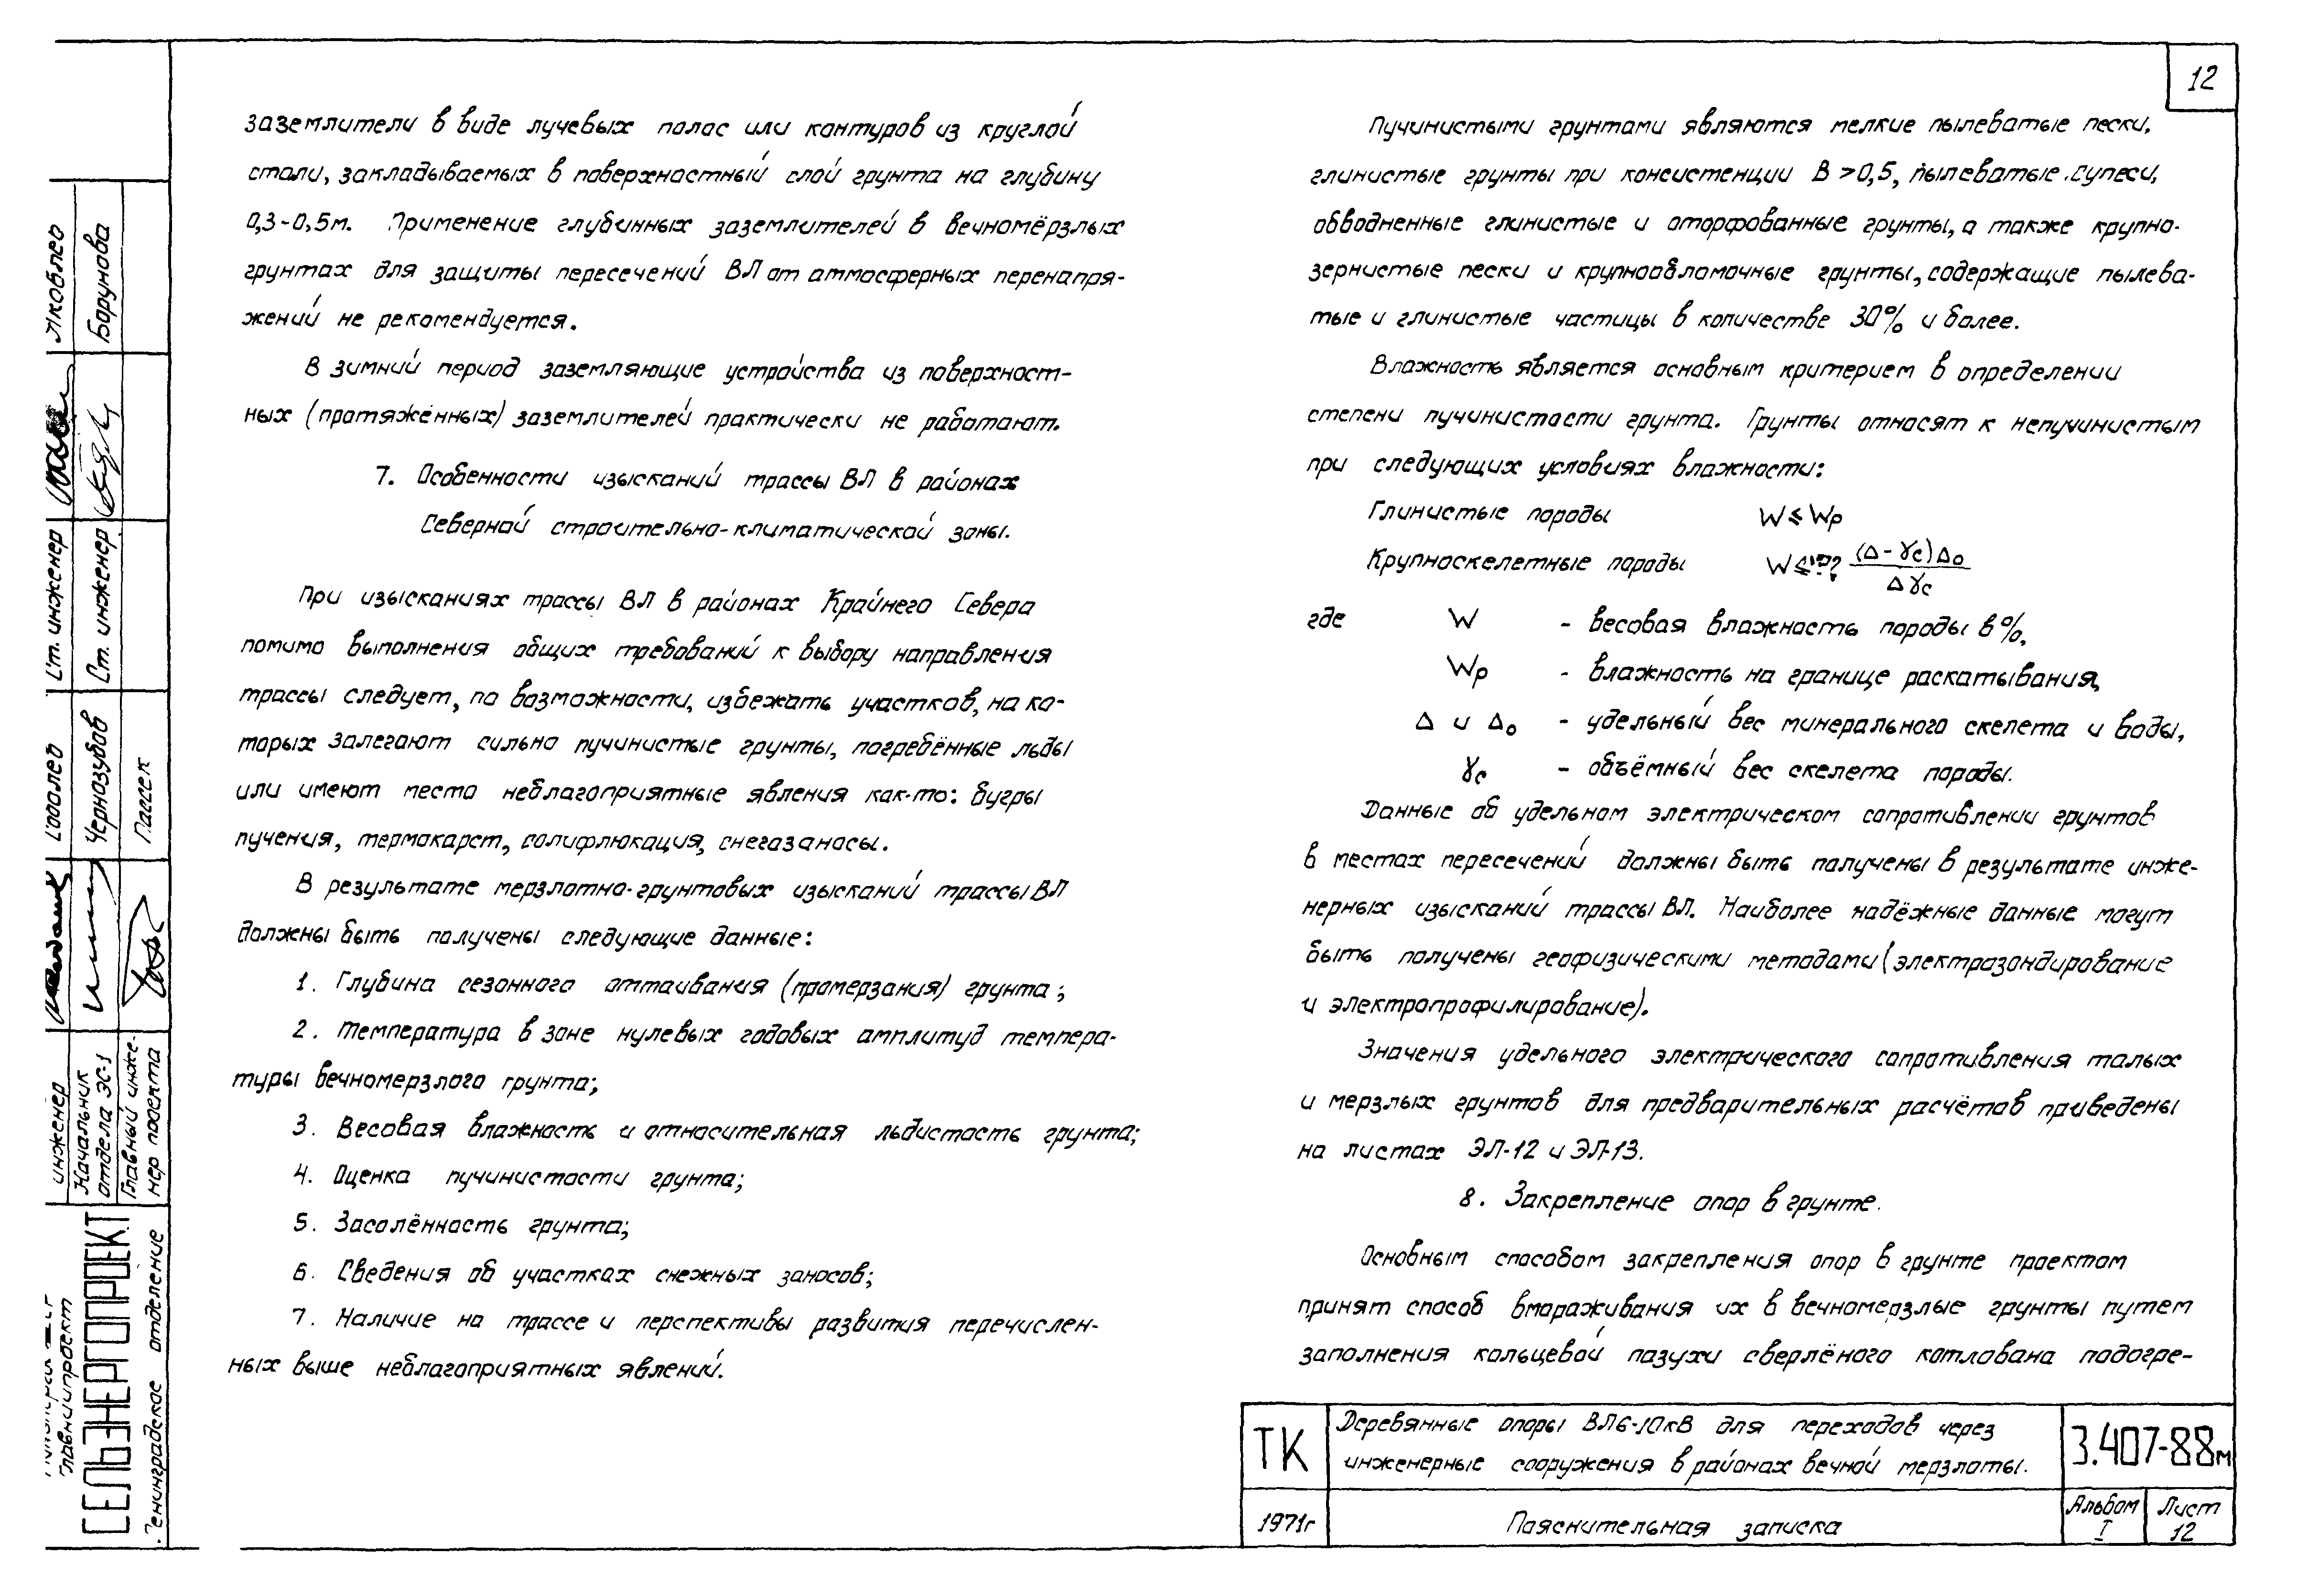 12
заземлители в виде лучевых полос или контуров из круглой
стали, закладываемых в поверхностный слой грунта на глубину
0,3-0,5м. Применение глубинных заземлителей в вечномёрзлых
грунтах для защиты пересечений ВЛ от атмосферных перенапря-
жений не рекомендуется.
В зимний период заземляющие устройства из поверхност-
ных (протяжённых) заземлителей практически не работают.
7. Особенности изысканий трассы ВЛ в районах
Северной строительно-климатической зоны.
При изысканиях трассы ВЛ в районах Крайнего Севера
помимо выполнения общих требований к выбору направления
трассы следует, по возможности, избежать участков, на ко-
торых залегают сильно пучинистые грунты, погребённые льды
или имеют место неблагоприятные явления как-то: бугры
пучения, термокарст, солифлюкация, снегозаносы.
В результате мерзлотно-грунтовых изысканий трассы ВЛ
должны быть получены следующие данные:
1. Глубина сезонного оттаивания (промерзания) грунта;
2. Температура в зоне нулевых годовых амплитуд темпера-
туры вечномерзлого грунта;
3. Весовая влажность и относительная льдистость грунта;
4. Оценка пучинистости грунта;
5. Засолённость грунта;
6. Сведения об участках снежных заносов;
7. Наличие на трассе и перспективы развития перечислен-
ных выше неблагоприятных явлений.
Пучинистыми грунтами являются мелкие пылеватые пески,
глинистые грунты при консистенции В >0,5, пылеватые супеси,
обводненные глинистые и оторфованные грунты, а также крупно-
зернистые пески и крупнообломочные грунты, содержащие пылева-
тые и глинистые частицы в количестве 30% и более.
Влажность является основным критерием в определении
степени пучинистости грунта. Грунты относят к непучинистым
при следующих условиях влажности:
Глинистые породы W ≤ Wр
Крупноскелетные породы W ≤ (Δ - γс) Δ₀ / Δγс
где W - весовая влажность породы в %,
Wр - влажность на границе раскатывания,
Δ и Δ₀ - удельный вес минерального скелета и воды,
γс - объёмный вес скелета породы.
Данные об удельном электрическом сопротивлении грунтов
в местах пересечений должны быть получены в результате инже-
нерных изысканий трассы ВЛ. Наиболее надёжные данные могут
быть получены геофизическими методами (электрозондирование
и электропрофилирование).
Значения удельного электрического сопротивления талых
и мерзлых грунтов для предварительных расчётов приведены
на листах ЭЛ-12 и ЭЛ-13.
8. Закрепление опор в грунте.
Основным способом закрепления опор в грунте проектом
принят способ вмораживания их в вечномерзлые грунты путем
заполнения кольцевой пазухи сверлёного котлована подогре-
ТК
Деревянные опоры ВЛ6-10кВ для переходов через
инженерные сооружения в районах вечной мерзлоты.
3.407-88м
1971г
Пояснительная записка
Альбом
I
Лист
12
Главниипроект
СЕЛЬЭНЕРГОПРОЕКТ
Ленинградское отделение
инженер
Соболев
Ст. инженер
Яковлев
Начальник
отдела ЭС-1
Чернозубов
Ст. инженер
Борунова
Главный инже-
нер проекта
Пассек